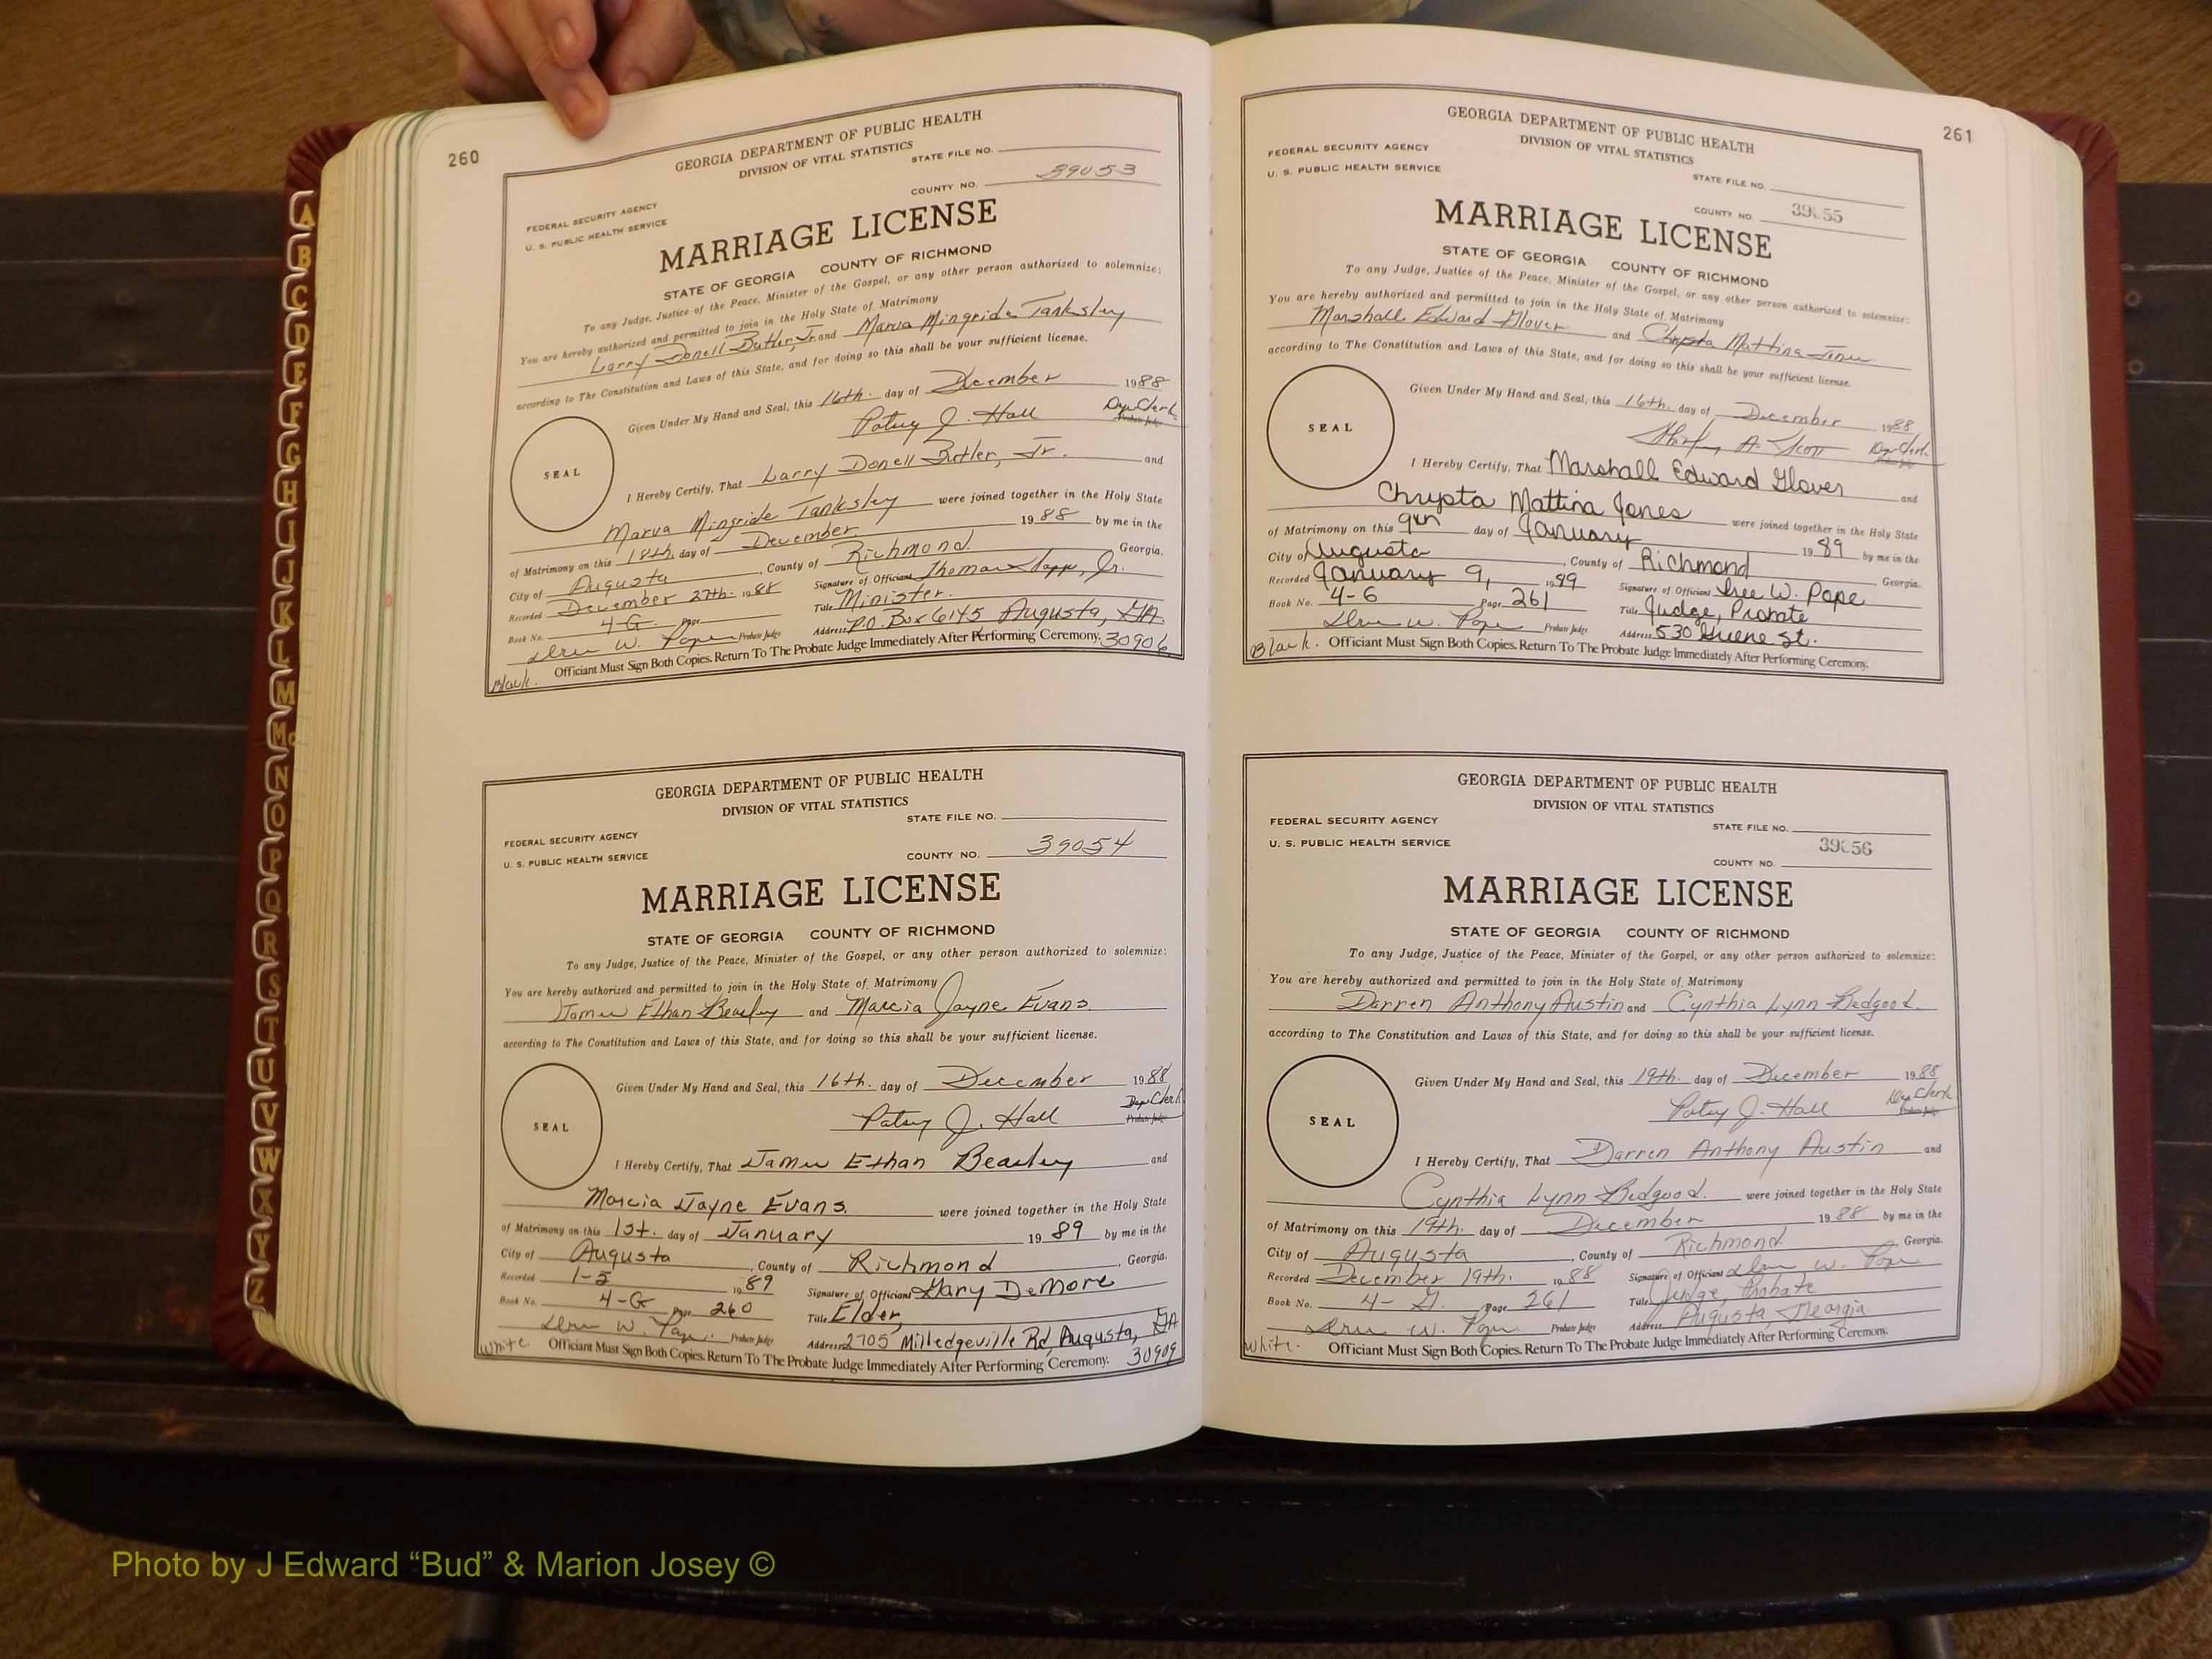 260
GEORGIA DEPARTMENT OF PUBLIC HEALTH
DIVISION OF VITAL STATISTICS
STATE FILE NO.
COUNTY NO. 39053
FEDERAL SECURITY AGENCY
U. S. PUBLIC HEALTH SERVICE
MARRIAGE LICENSE
STATE OF GEORGIA COUNTY OF RICHMOND
To any Judge, Justice of the Peace, Minister of the Gospel, or any other person authorized to solemnize:
You are hereby authorized and permitted to join in the Holy State of Matrimony
Larry Donell Butler, Jr. and Marva Mingride Tanksley
according to The Constitution and Laws of this State, and for doing so this shall be your sufficient license.
Given Under My Hand and Seal, this 16th. day of December 1988
Patsy J. Hall Dep Clerk
Probate Judge
SEAL
I Hereby Certify, That Larry Donell Butler, Jr. and
Marva Mingride Tanksley were joined together in the Holy State
of Matrimony on this 18th. day of December 1988 by me in the
City of Augusta, County of Richmond Georgia.
Recorded December 27th. 1988 Signature of Officiant Thomas Jr.
Book No. 4-G Page Title Minister.
W. Pope Probate Judge Address P.O. Box 6145 Augusta, GA.
Black. Officiant Must Sign Both Copies. Return To The Probate Judge Immediately After Performing Ceremony. 30906
GEORGIA DEPARTMENT OF PUBLIC HEALTH
DIVISION OF VITAL STATISTICS
STATE FILE NO.
FEDERAL SECURITY AGENCY
U. S. PUBLIC HEALTH SERVICE
COUNTY NO. 39054
MARRIAGE LICENSE
STATE OF GEORGIA COUNTY OF RICHMOND
To any Judge, Justice of the Peace, Minister of the Gospel, or any other person authorized to solemnize:
You are hereby authorized and permitted to join in the Holy State of Matrimony
James Ethan Beasley and Marcia Jayne Evans
according to The Constitution and Laws of this State, and for doing so this shall be your sufficient license.
Given Under My Hand and Seal, this 16th. day of December 1988
Patsy J. Hall Dep Clerk
Probate Judge
SEAL
I Hereby Certify, That James Ethan Beasley and
Marcia Jayne Evans. were joined together in the Holy State
of Matrimony on this 1st. day of January 1989 by me in the
City of Augusta, County of Richmond, Georgia.
Recorded 1-5 1989 Signature of Officiant Gary DeMore
Book No. 4-G Page 260 Title Elder,
W. Pope Probate Judge Address 2705 Milledgeville Rd, Augusta, GA
White Officiant Must Sign Both Copies. Return To The Probate Judge Immediately After Performing Ceremony. 30909
261
GEORGIA DEPARTMENT OF PUBLIC HEALTH
DIVISION OF VITAL STATISTICS
FEDERAL SECURITY AGENCY
U. S. PUBLIC HEALTH SERVICE
STATE FILE NO.
COUNTY NO. 39055
MARRIAGE LICENSE
STATE OF GEORGIA COUNTY OF RICHMOND
To any Judge, Justice of the Peace, Minister of the Gospel, or any other person authorized to solemnize:
You are hereby authorized and permitted to join in the Holy State of Matrimony
Marshall Edward Glover and Chrysta Mattina Jones
according to The Constitution and Laws of this State, and for doing so this shall be your sufficient license.
Given Under My Hand and Seal, this 16th. day of December 1988
A. Scott Dep Clerk
SEAL
I Hereby Certify, That Marshall Edward Glover and
Chrysta Mattina Jones were joined together in the Holy State
of Matrimony on this 9th day of January 1989 by me in the
City of Augusta, County of Richmond Georgia.
Recorded January 9, 1989 Signature of Officiant W. Pope
Book No. 4-G Page 261 Title Judge, Probate
W. Pope Probate Judge Address 530 Greene St.
Black. Officiant Must Sign Both Copies. Return To The Probate Judge Immediately After Performing Ceremony.
GEORGIA DEPARTMENT OF PUBLIC HEALTH
DIVISION OF VITAL STATISTICS
FEDERAL SECURITY AGENCY
U. S. PUBLIC HEALTH SERVICE
STATE FILE NO.
39056
COUNTY NO.
MARRIAGE LICENSE
STATE OF GEORGIA COUNTY OF RICHMOND
To any Judge, Justice of the Peace, Minister of the Gospel, or any other person authorized to solemnize:
You are hereby authorized and permitted to join in the Holy State of Matrimony
Darren Anthony Austin and Cynthia Lynn Bedgood.
according to The Constitution and Laws of this State, and for doing so this shall be your sufficient license.
Given Under My Hand and Seal, this 19th. day of December 1988
Patsy J. Hall Dep Clerk
Probate Judge
SEAL
I Hereby Certify, That Darren Anthony Austin and
Cynthia Lynn Bedgood. were joined together in the Holy State
of Matrimony on this 19th. day of December 1988 by me in the
City of Augusta, County of Richmond, Georgia.
Recorded December 19th. 1988 Signature of Officiant W. Pope
Book No. 4-G. Page 261 Title Judge, Probate
W. Pope Probate Judge Address Augusta, Georgia
White. Officiant Must Sign Both Copies. Return To The Probate Judge Immediately After Performing Ceremony.
A
B
C
D
E
F
G
H
I
J
K
L
M
Mc
N
O
P
Q
R
S
T
U
V
W
X
Y
Z
Photo by J Edward “Bud” & Marion Josey ©